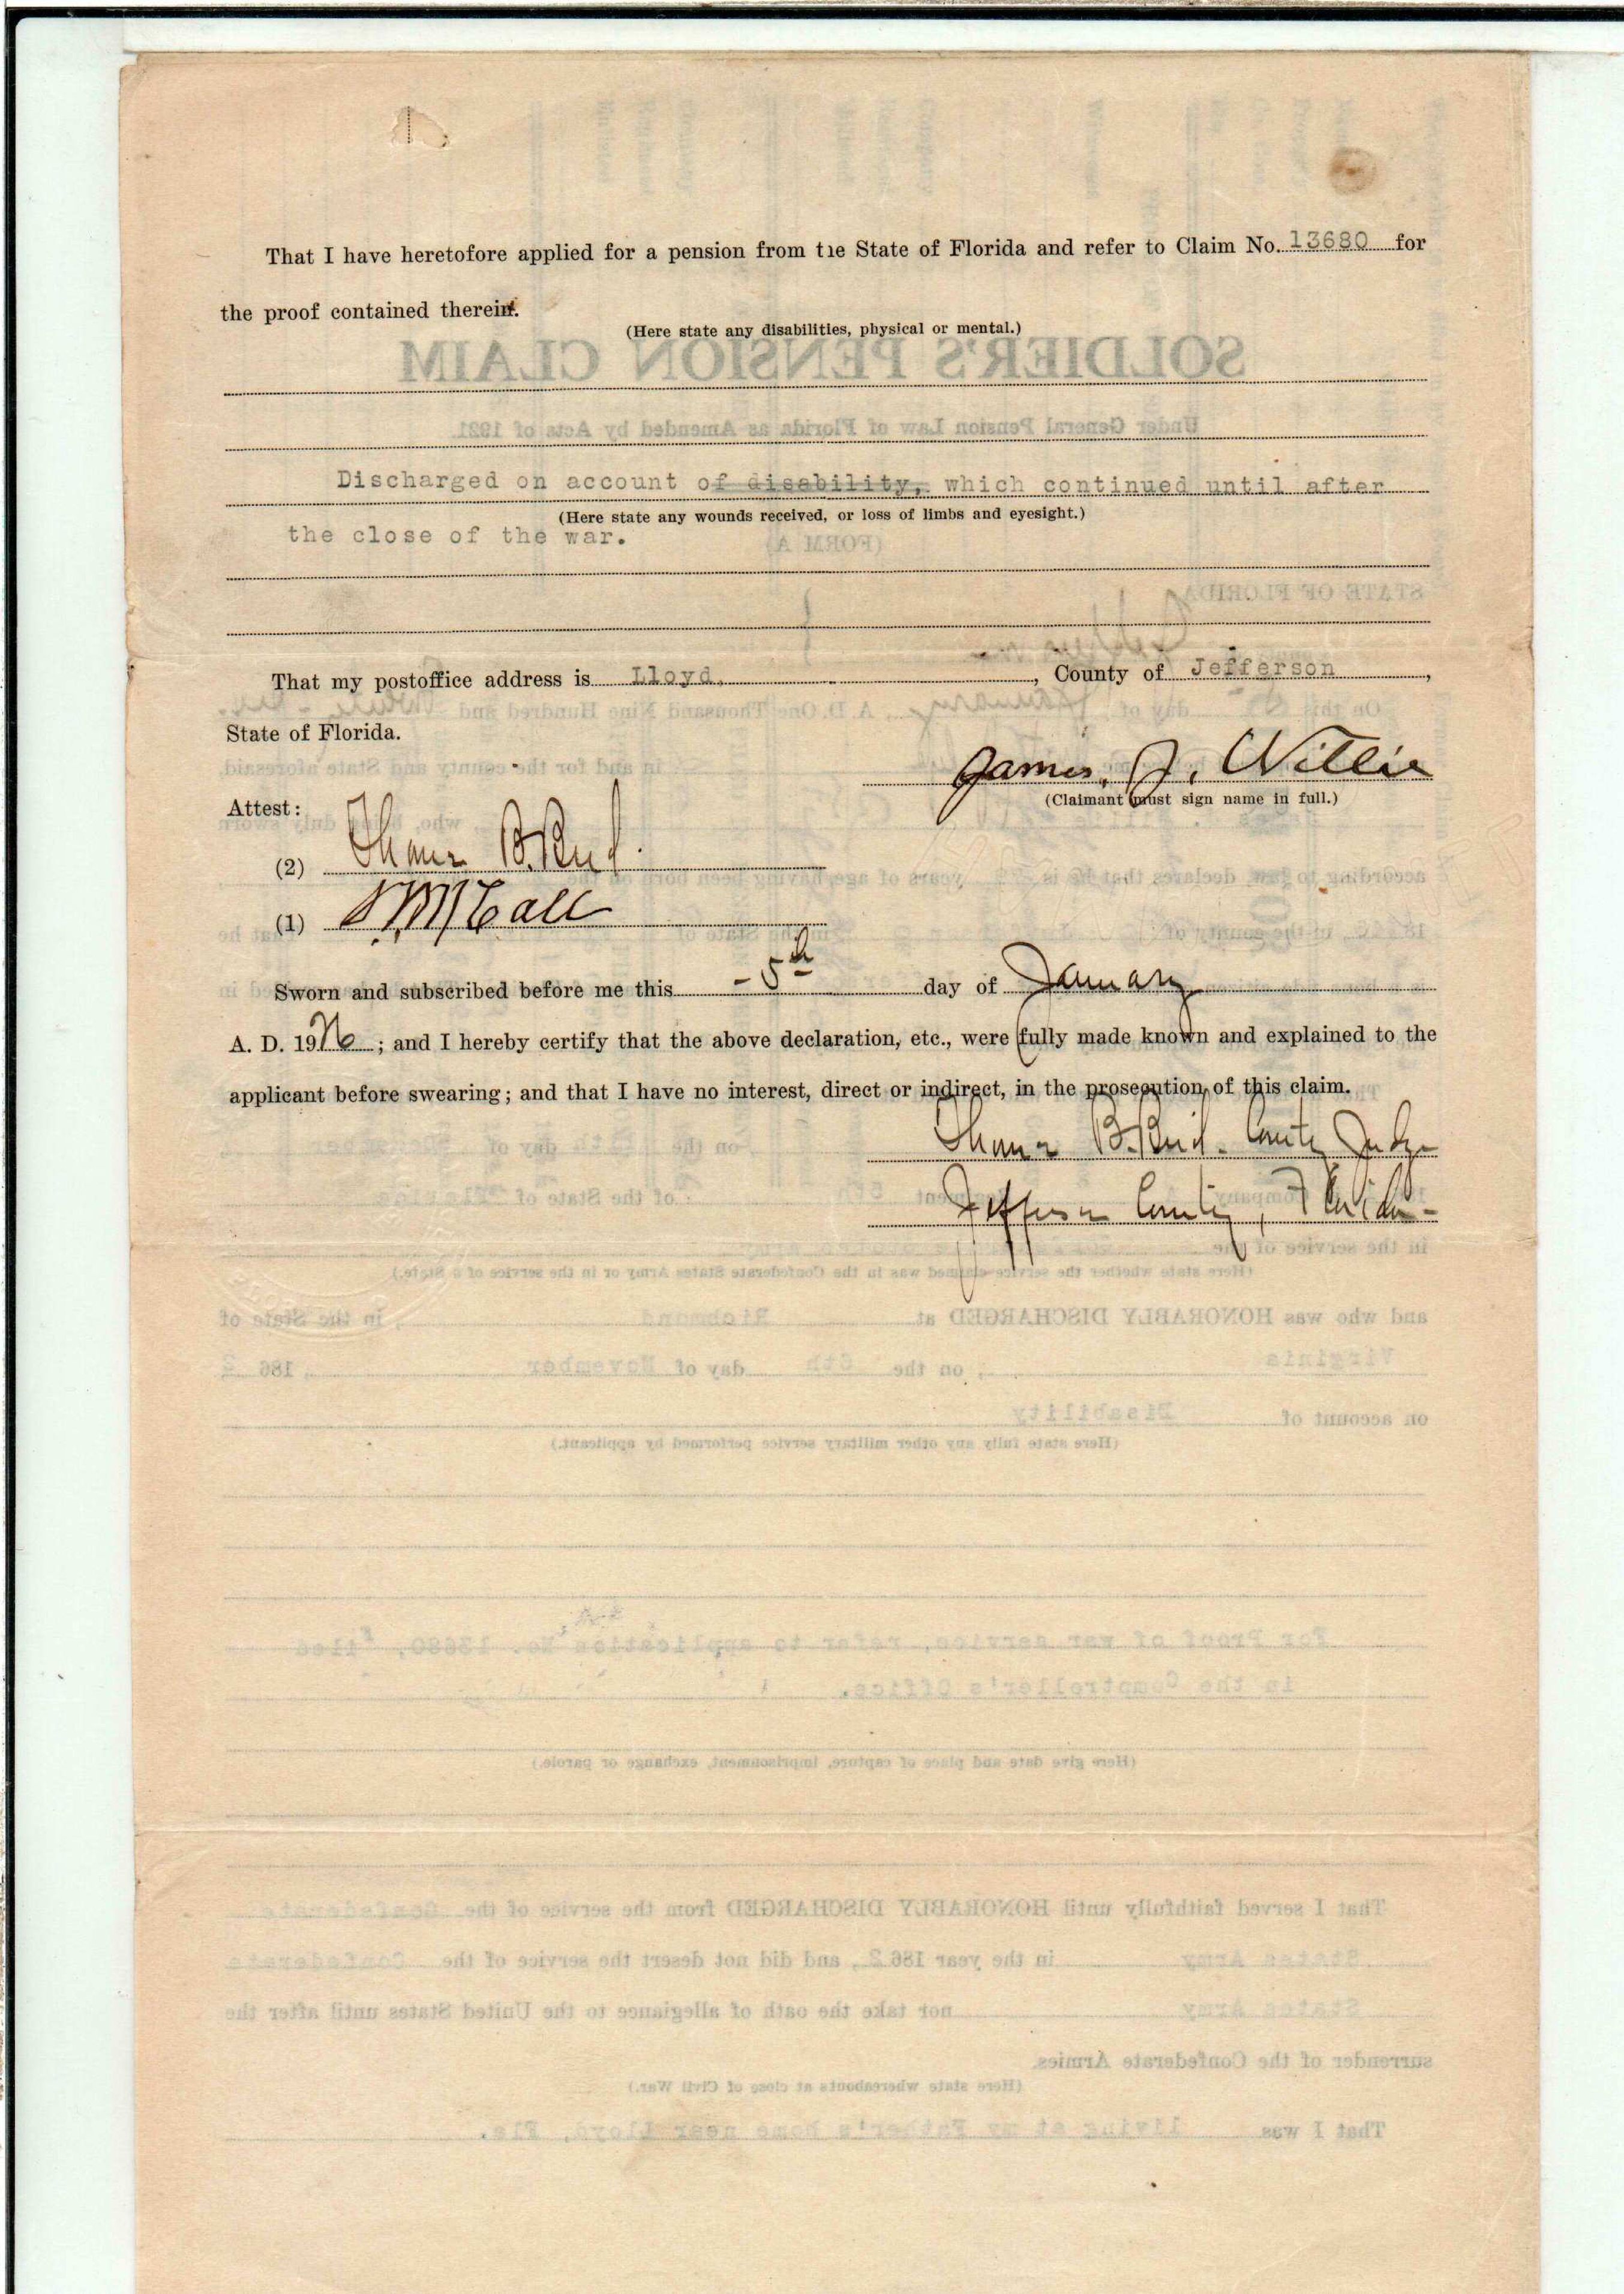 That I have heretofore applied for a pension from tie State of Florida and refer to Claim No. 13680 for
the proof contained therein.
(Here state any disabilities, physical or mental.)
Discharged on account of disability, which continued until after
(Here state any wounds received, or loss of limbs and eyesight.)
the close of the war.
That my postoffice address is Lloyd, , County of Jefferson ,
State of Florida.
James. J. Willie
(Claimant must sign name in full.)
Attest:
(2) B.
(1)
Sworn and subscribed before me this - 5th day of January
A. D. 1926 ; and I hereby certify that the above declaration, etc., were fully made known and explained to the
applicant before swearing; and that I have no interest, direct or indirect, in the prosecution of this claim.
B. County Judge
Jefferson County, Florida-